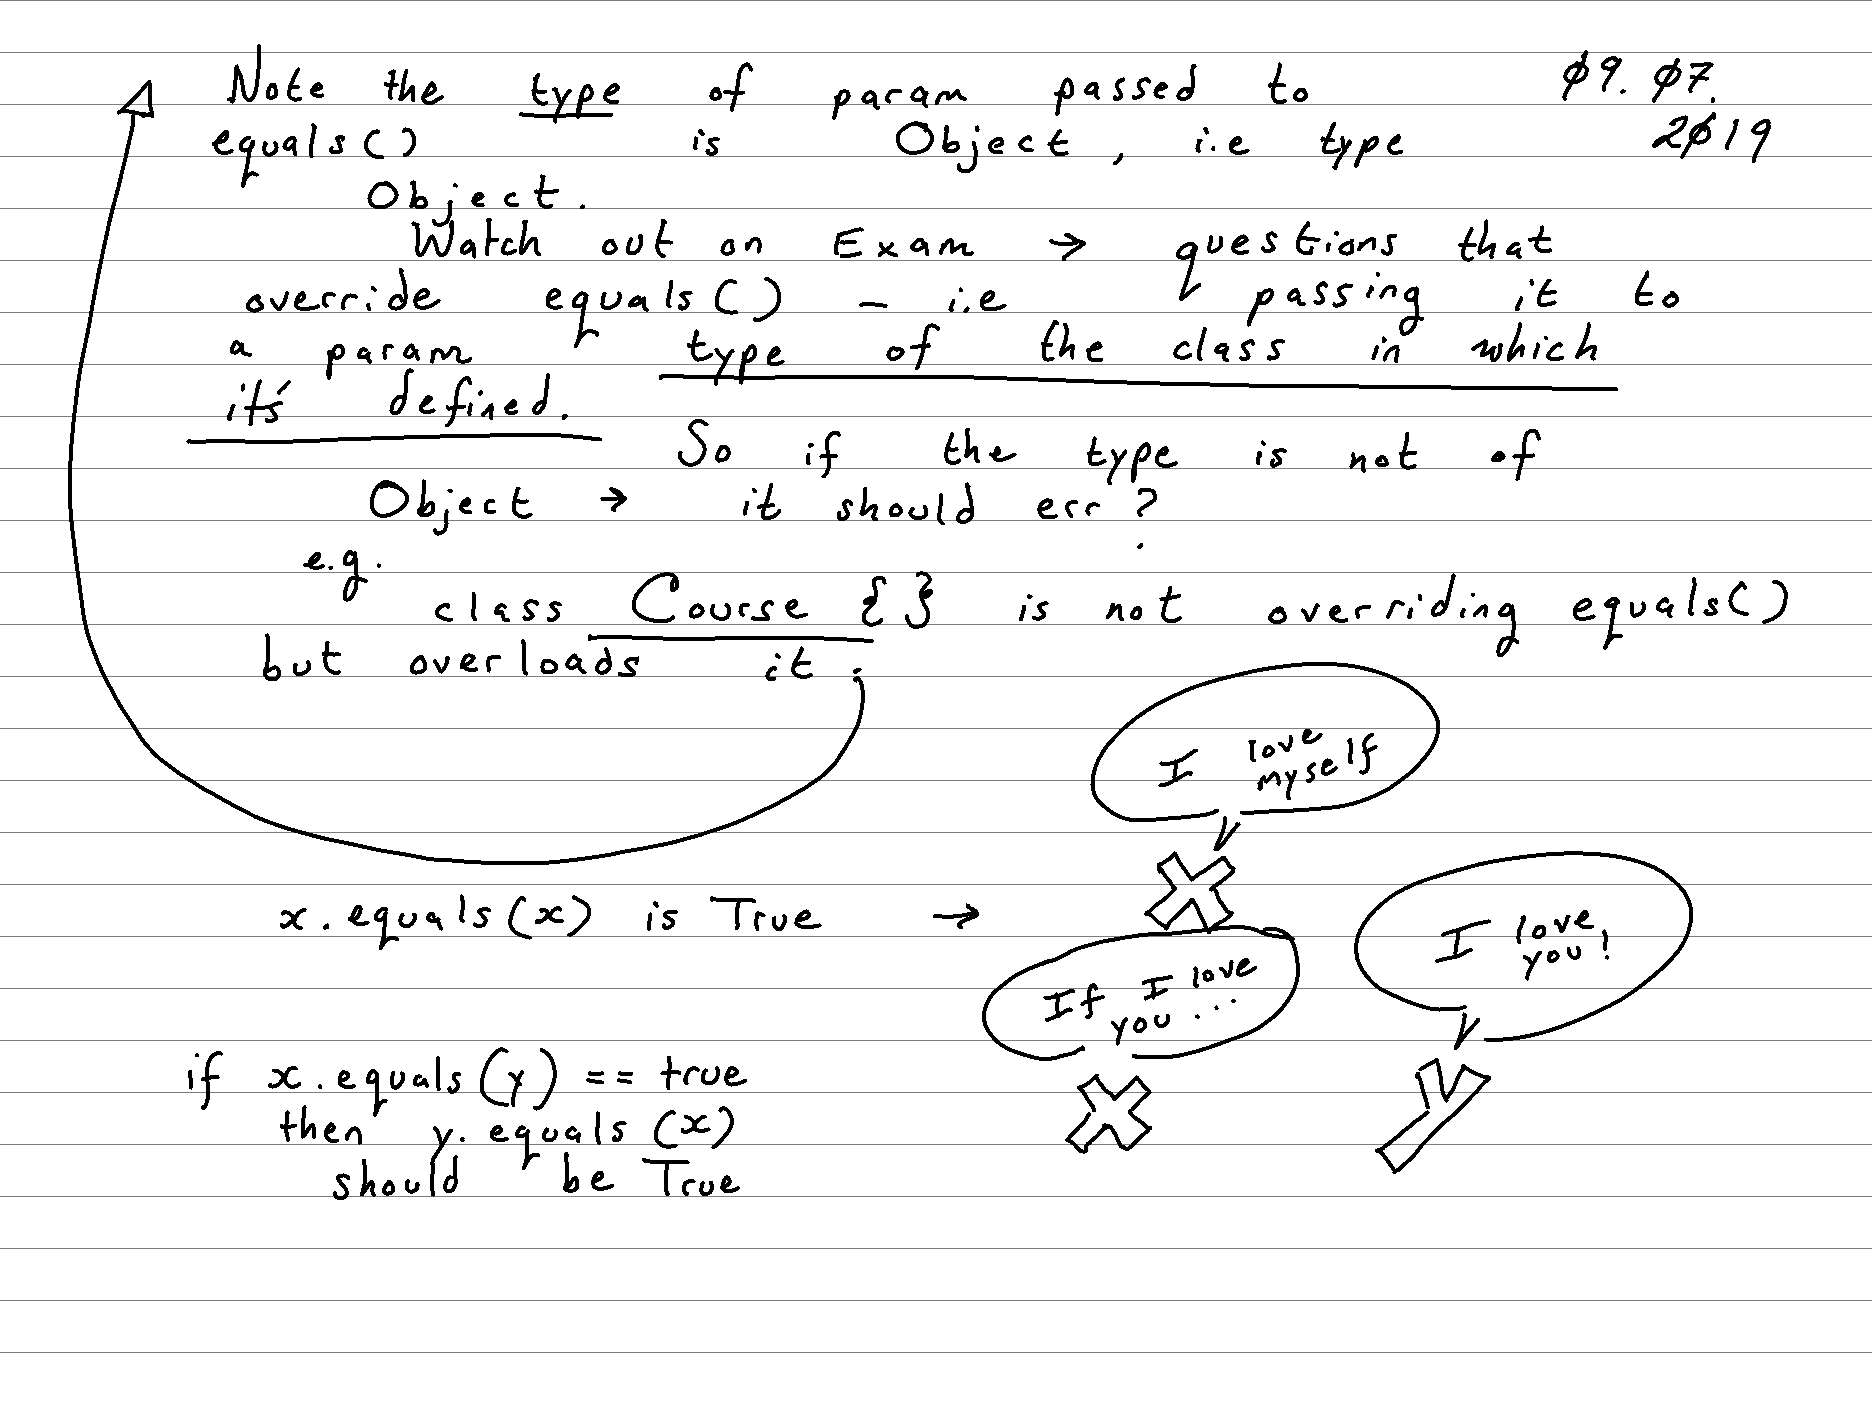 Note the type of param passed to
Ø9. Ø7.
2Ø19
equals() is Object, i.e type
Object.
Watch out on Exam → questions that
override equals() – i.e passing it to
a param type of the class in which
it's defined.
So if the type is not of
Object → it should err?
e.g.
class Course {} is not overriding equals()
but overloads it.
I love
myself
x.equals(x) is True →
I love
you!
If I love
you...
if x.equals(y) == true
then y.equals(x)
should be True